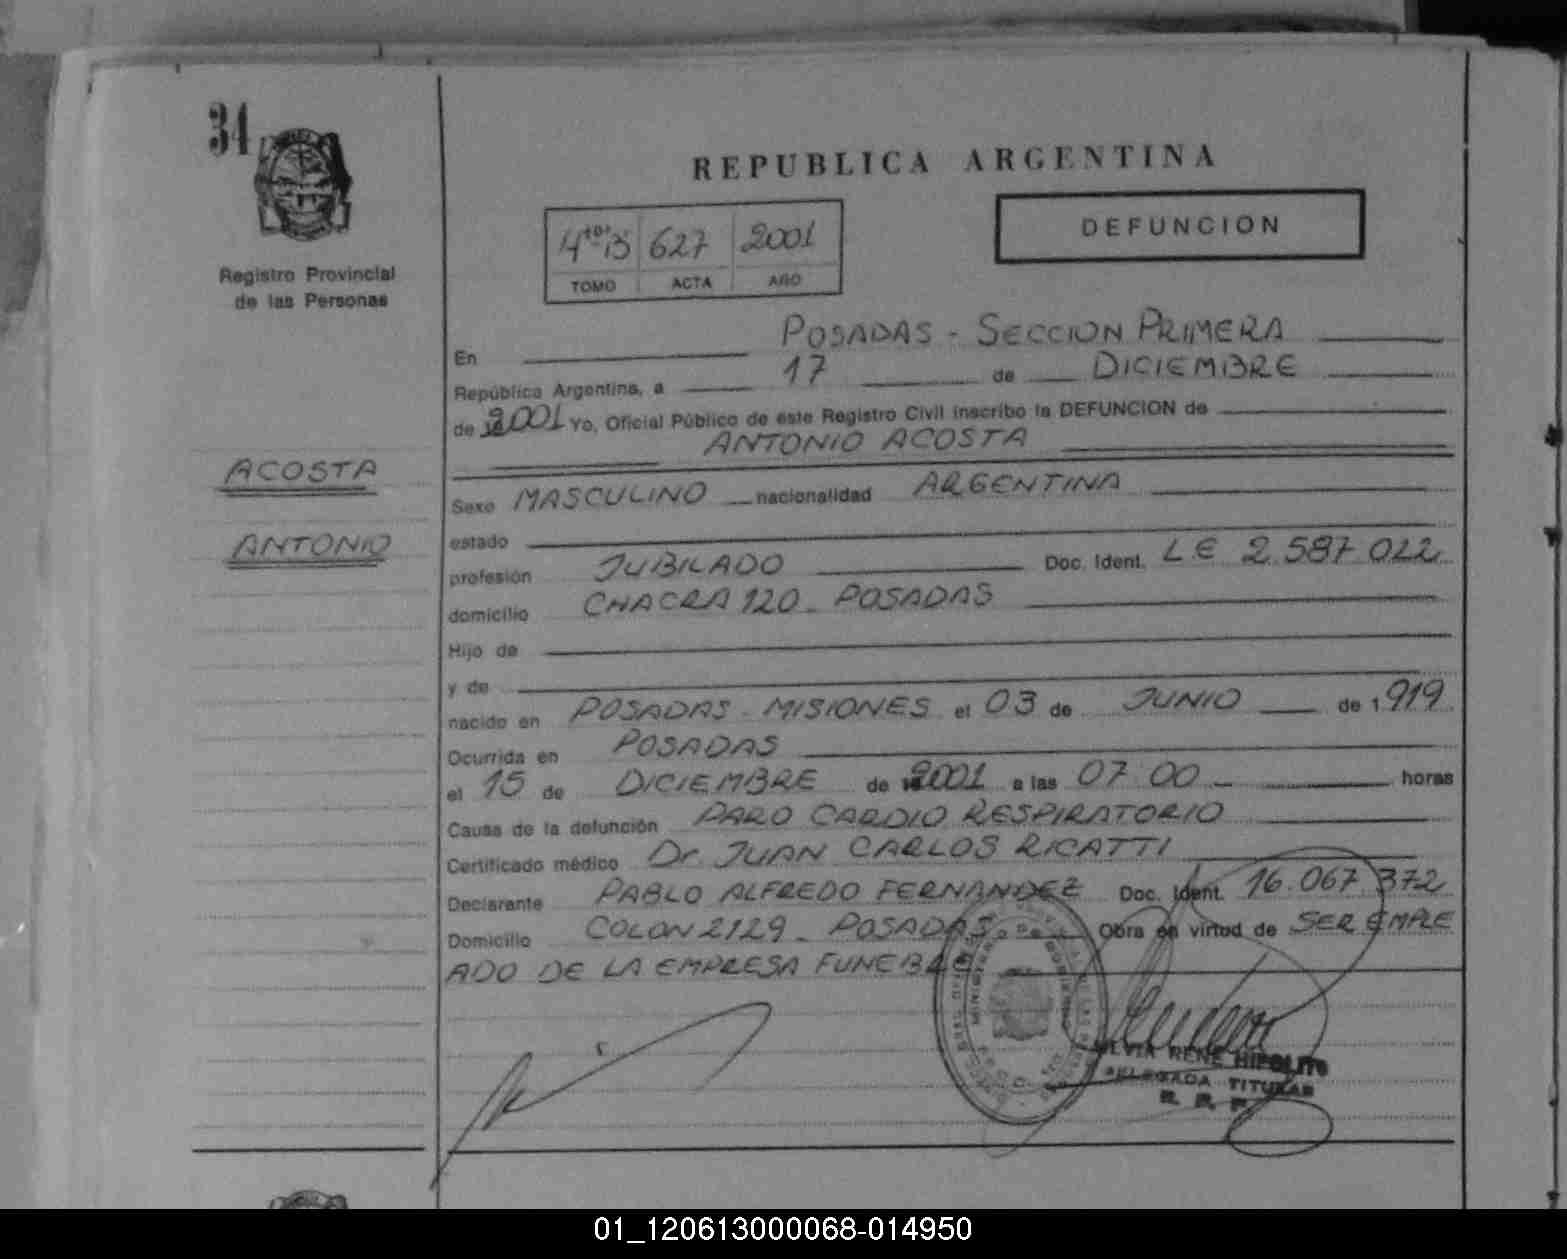 34
Registro Provincial
de las Personas
REPUBLICA ARGENTINA
4to B 627 2001
TOMO ACTA AÑO
DEFUNCION
En POSADAS - SECCION PRIMERA
República Argentina, a 17 de DICIEMBRE
de 2001 Yo, Oficial Público de este Registro Civil inscribo la DEFUNCION de
ANTONIO ACOSTA
ACOSTA
ANTONIO
Sexo MASCULINO nacionalidad ARGENTINA
estado
profesión JUBILADO Doc. Ident. LE 2.587.022
domicilio CHACRA 120 - POSADAS
Hijo de
y de
nacido en POSADAS - MISIONES el 03 de JUNIO de 1.919
Ocurrida en POSADAS
el 15 de DICIEMBRE de 2001 a las 07.00 horas
Causa de la defunción PARO CARDIO RESPIRATORIO
Certificado médico Dr. JUAN CARLOS RICATTI
Declarante PABLO ALFREDO FERNANDEZ Doc. Ident. 16.067.372
Domicilio COLON 2129 - POSADAS Obra en virtud de SER EMPLE
ADO DE LA EMPRESA FUNEBRE
SILVIA RENE HIPOLITO
DELEGADA TITULAR
R. P. P.
01_120613000068-014950